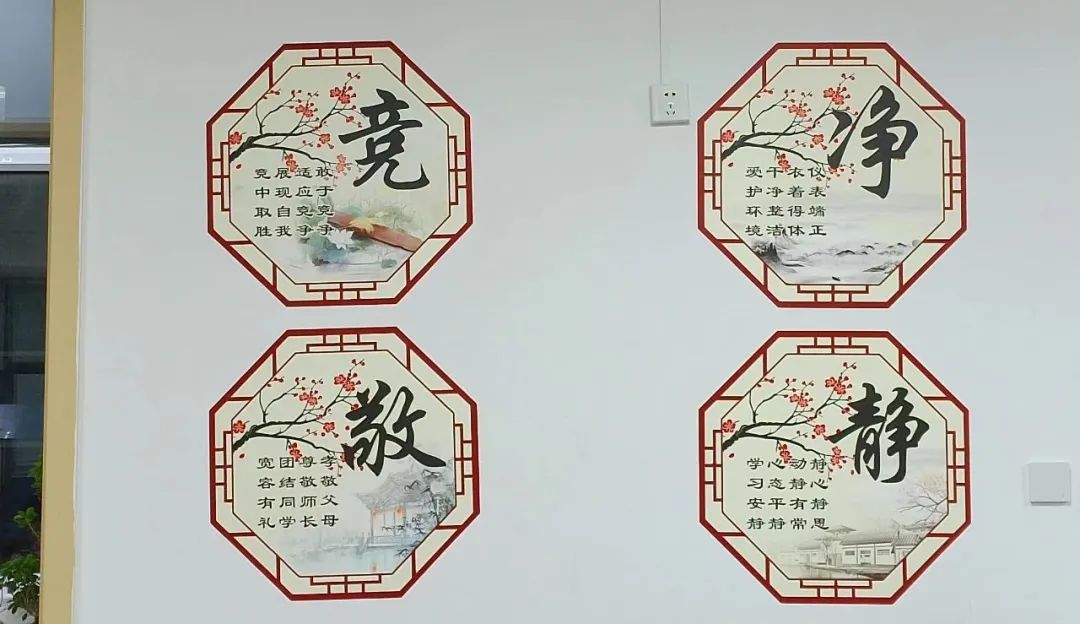 竞
敢于竞争
适应竞争
展现自我
竞中取胜
净
仪表端正
衣着得体
干净整洁
爱护环境
敬
孝敬父母
尊敬师长
团结同学
宽容有礼
静
静心静思
动静有常
心态平静
学习安静